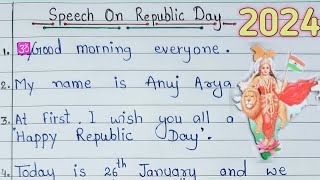 Speech On Republic Day 2024
1. ॐ Good morning everyone.
2. My name is Anuj Arya.
3. At first. I wish you all a
"Happy Republic Day".
4. Today is 26th January and we